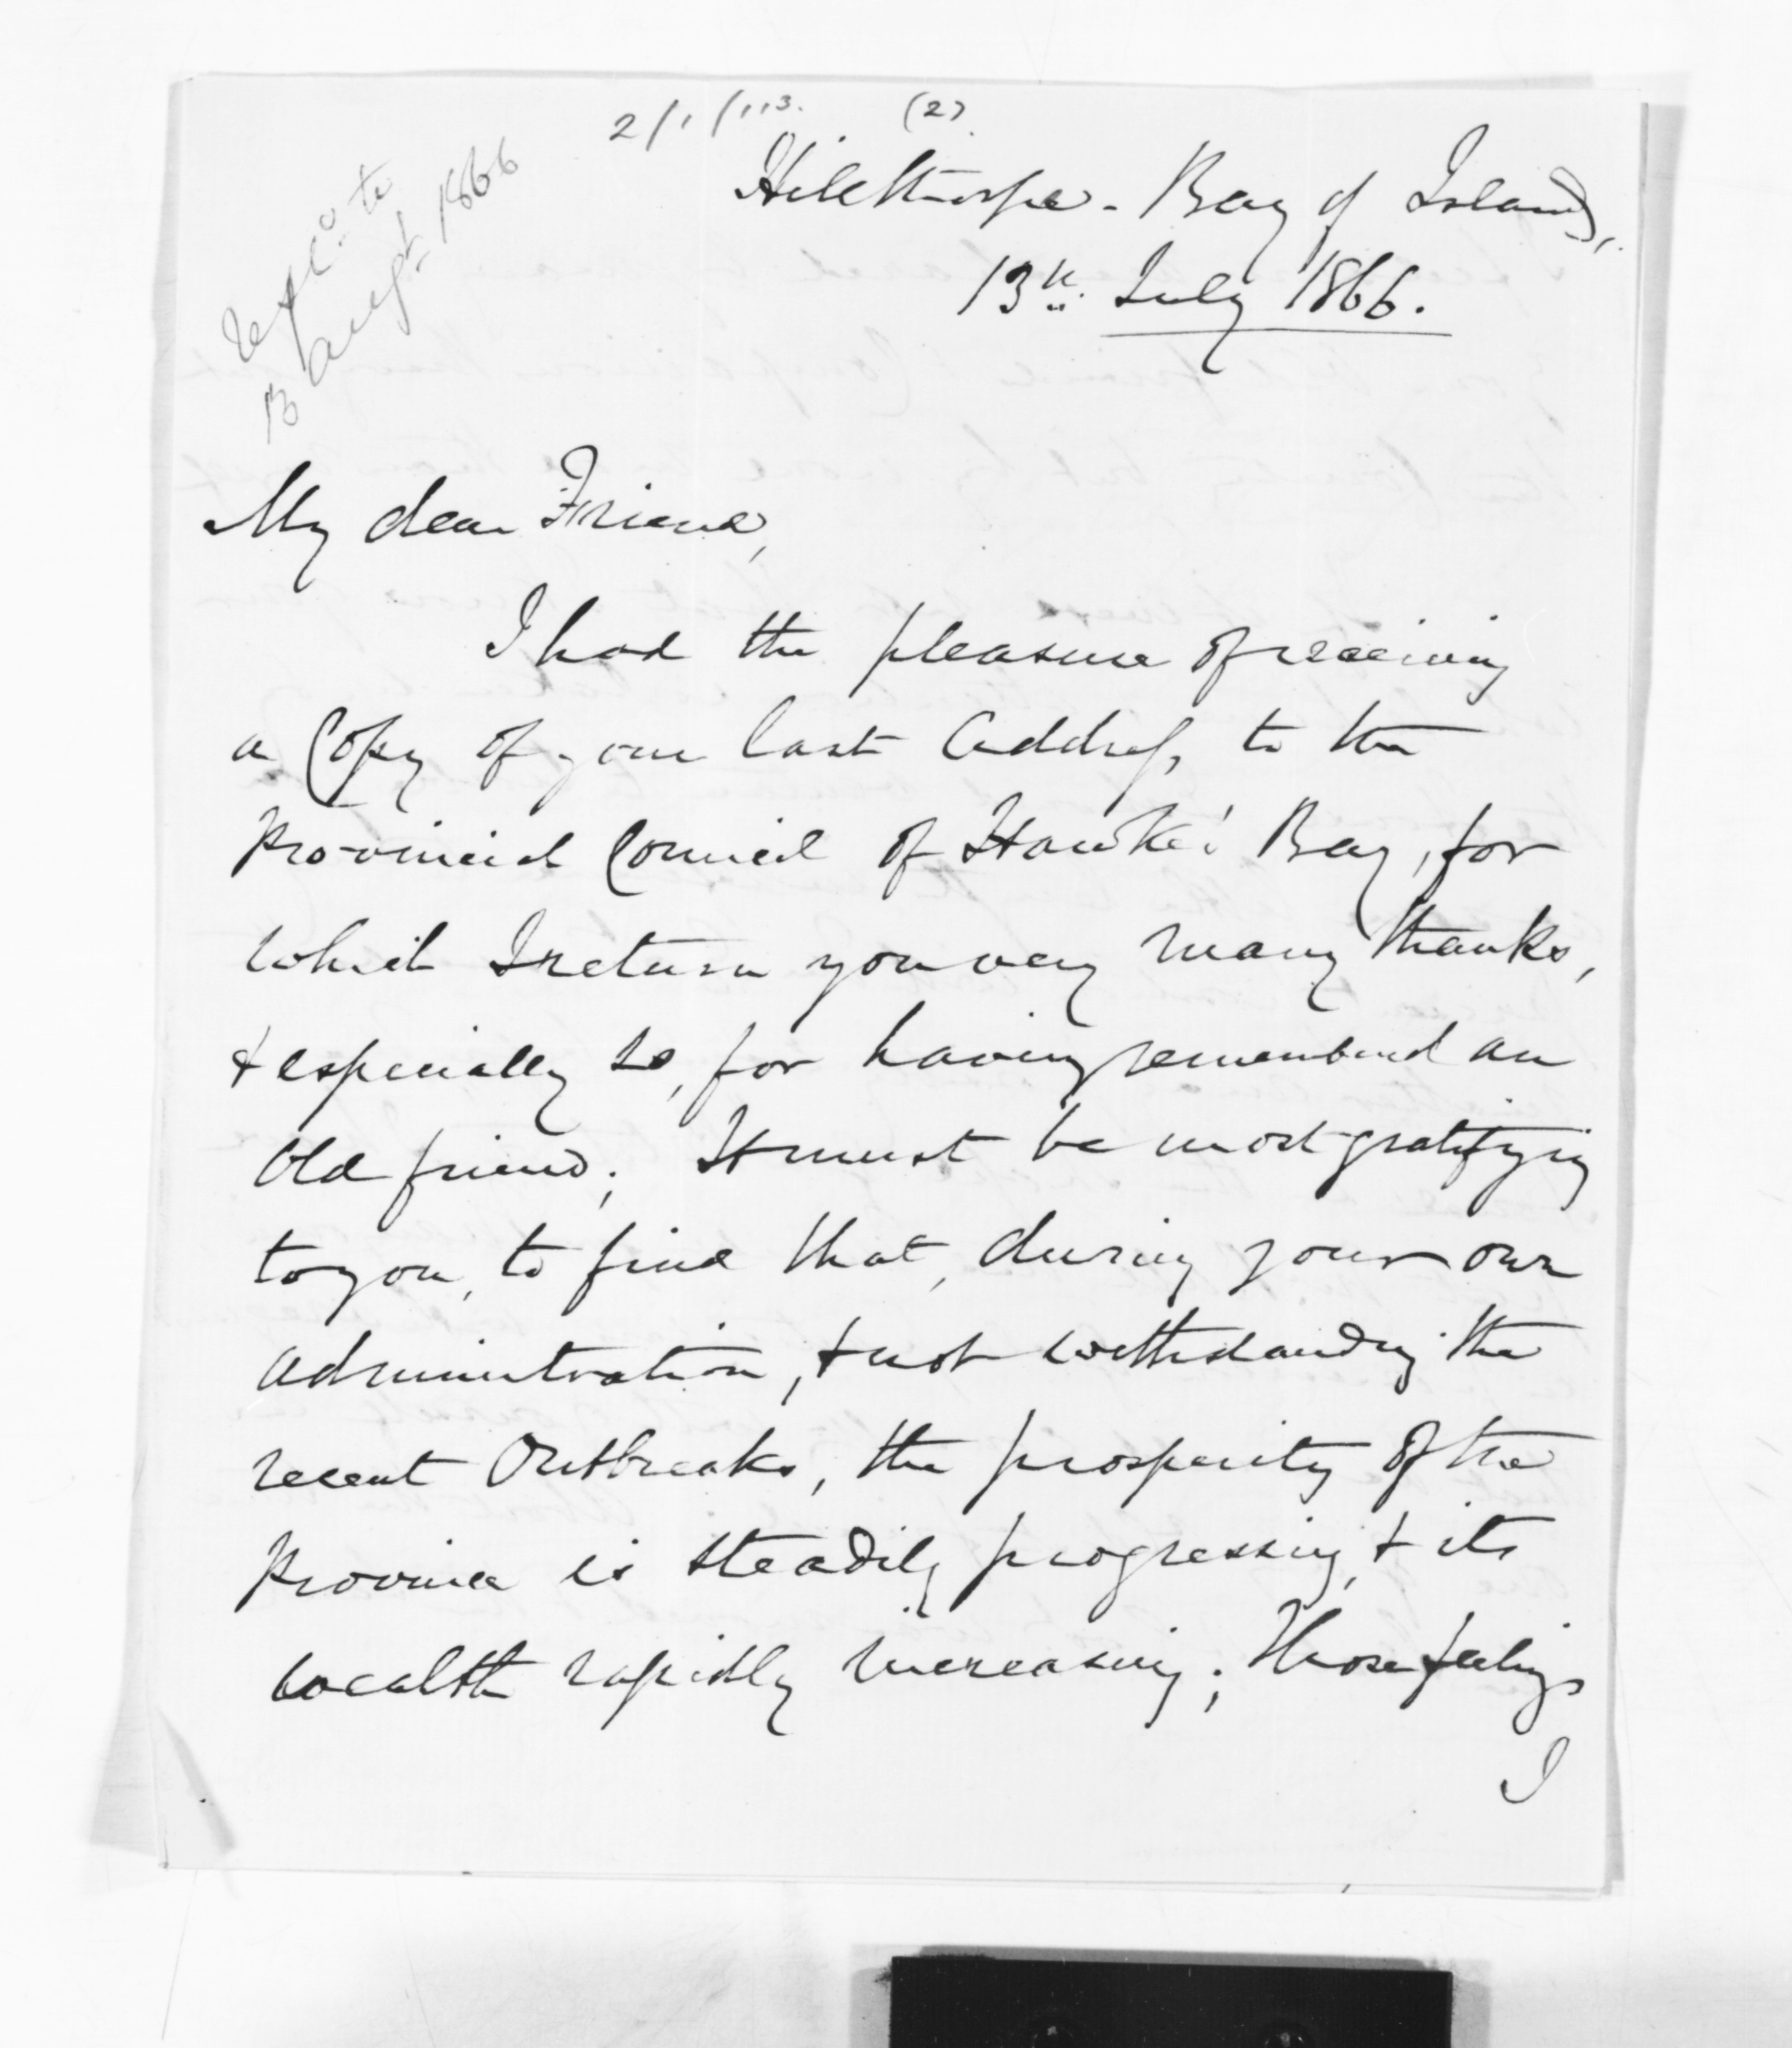 2/1/113. (2).
Hilethorpe - Bay of Islands,
13th. July 1866.
repld. to
13 Augt. 1866
My dear Friend,
I had the pleasure of receiving
a Copy of your last Address, to the
Provincial Council of Hawke's Bay, for
which I return you very many thanks,
& especially so, for having remembered an
Old friend; It must be most gratifying
to you, to find that, during your own
administration, & not withstanding the
recent Outbreaks, the prosperity of the
Province is steadily progressing, & its
wealth rapidly increasing; Those feelings
I